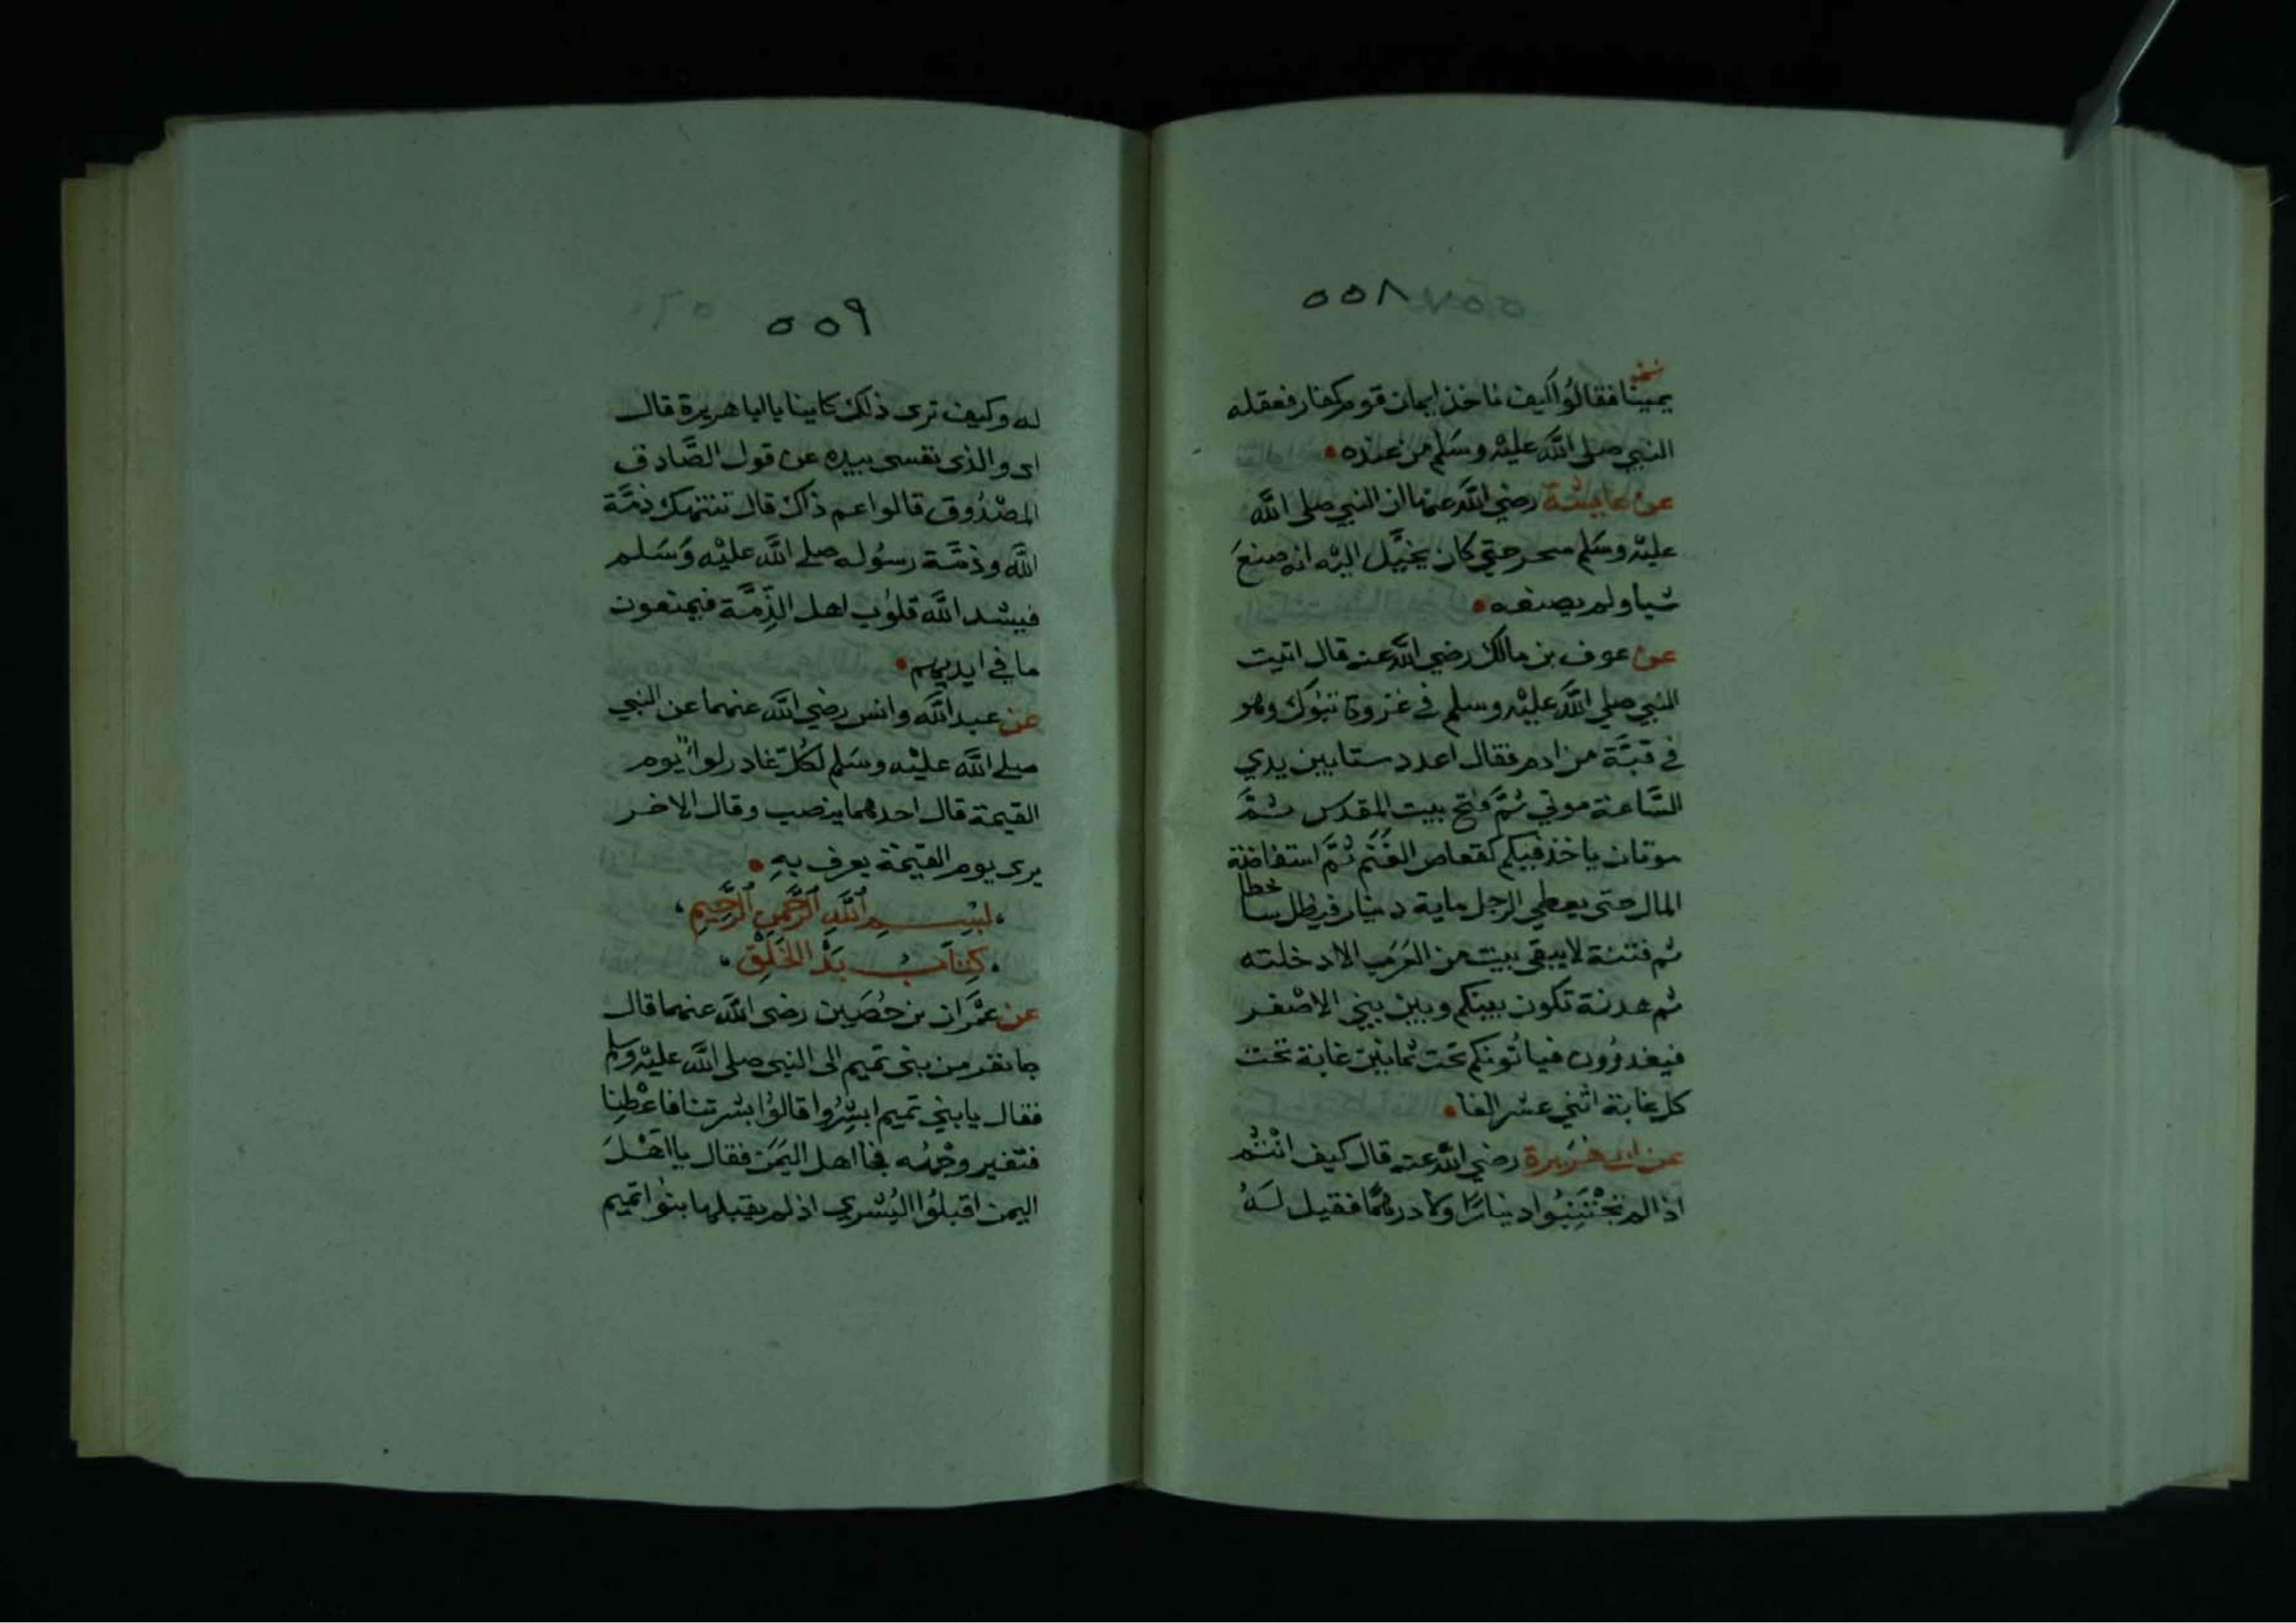 ٥٥٨
يمينا فقالوُا كيف ناخذ ايمان قوم كفار فعقله
النبي صلى اللَّه عليْه وسَلم من عنده
عن عايشة رضي اللَّه عنها ان النبي صلى اللَّه
عليْه وسَلم سحر حتي كان يخيَّل اليْه انه صنعَ
شيا ولم يصنعه
عن عوف بن مالك رضي اللَّه عنه قال اتيت
النبي صلي اللَّه عليْه وسلم في غزوة تبوُك وهو
في قبَّة من ادم فقال اعدد ستا بين يدي
السَّاعة موتي ثمَّ فتح بيت المقدس ثمَّ
موتان ياخذ فيكم كقعاص الغَنَم ثمَّ استفاضة
المال حتى يعطي الرجل ماية دينار فيظل ساخطا
ثم فتنة لا يبقي بيت من العَرَب الا دخلته
ثم هدنة تكون بينكم وبين بني الاصْفر
فيغدرُون فياتُونكم تحت ثمانيْن غاية تحت
كل غاية اثني عشر الفا
عن ابي هُرَيرة رضي اللَّه عنه قال كيف انْتُم
اذا لم تجْتَبُوا دينارًا ولا درهمًا فقيل لَهُ
٥٥٩
له وكيف ترى ذلك كاينا يا ابا هريرة قال
اي والذى نفسى بيده عن قول الصَّادق
المصْدُوق قالوا عم ذاك قال تنتهك ذمَّة
اللَّه وذمَّة رسوُله صلے اللَّه عليْه وَسَلم
فيشد اللَّه قلوُب اهل الذِّمَّة فيمنعون
ما في ايديهم
عن عبد اللَّه وانس رضي اللَّه عنهما عن النبي
صلے اللَّه عليْه وسَلم لكُل غادر لواءٌ يوم
القيمة قال احدهما ينصب وقال الاخر
يرى يوم القيمَة يعرف بهِ
بِسْمِ اللَّهِ الرَّحْمنِ الرَّحِيمِ
كِتَابُ بَدْ الخَلْقِ
عن عمْرَان بن حُصَيْن رضى اللَّه عنهما قال
جا نفر من بني تميم الى النبي صلى اللَّه عليْه وسلم
فقال يا بني تميم ابشِرُوا قالوُا بشرتنا فاعْطِنا
فتغير وجْهُه فجا اهل اليَمَن فقال يا اَهْلَ
اليمن اقبلوُا البُشري اذ لم يقبلها بنوُا تميم